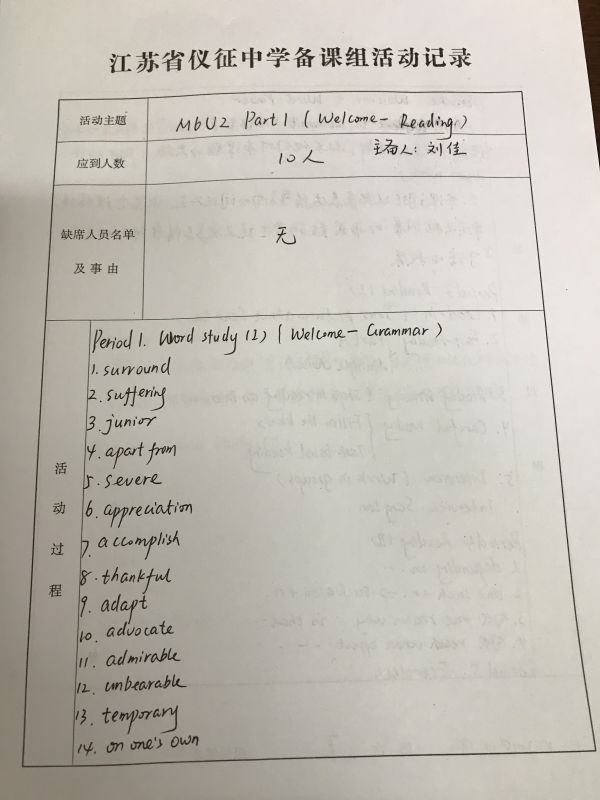 江苏省仪征中学备课组活动记录
活动主题
M6U2 Part 1 ( Welcome - Reading )
应到人数
10人
主备人: 刘佳
缺席人员名单
及事由
无
活动过程
Period 1. Word study (1) ( Welcome - Grammar )
1. surround
2. suffering
3. junior
4. apart from
5. severe
6. appreciation
7. accomplish
8. thankful
9. adapt
10. advocate
11. admirable
12. unbearable
13. temporary
14. on one's own